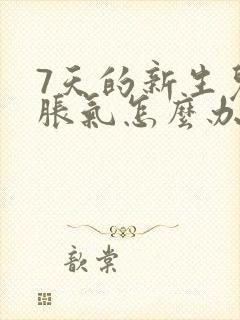 7天的新生
脹氣怎麼办
歆棠